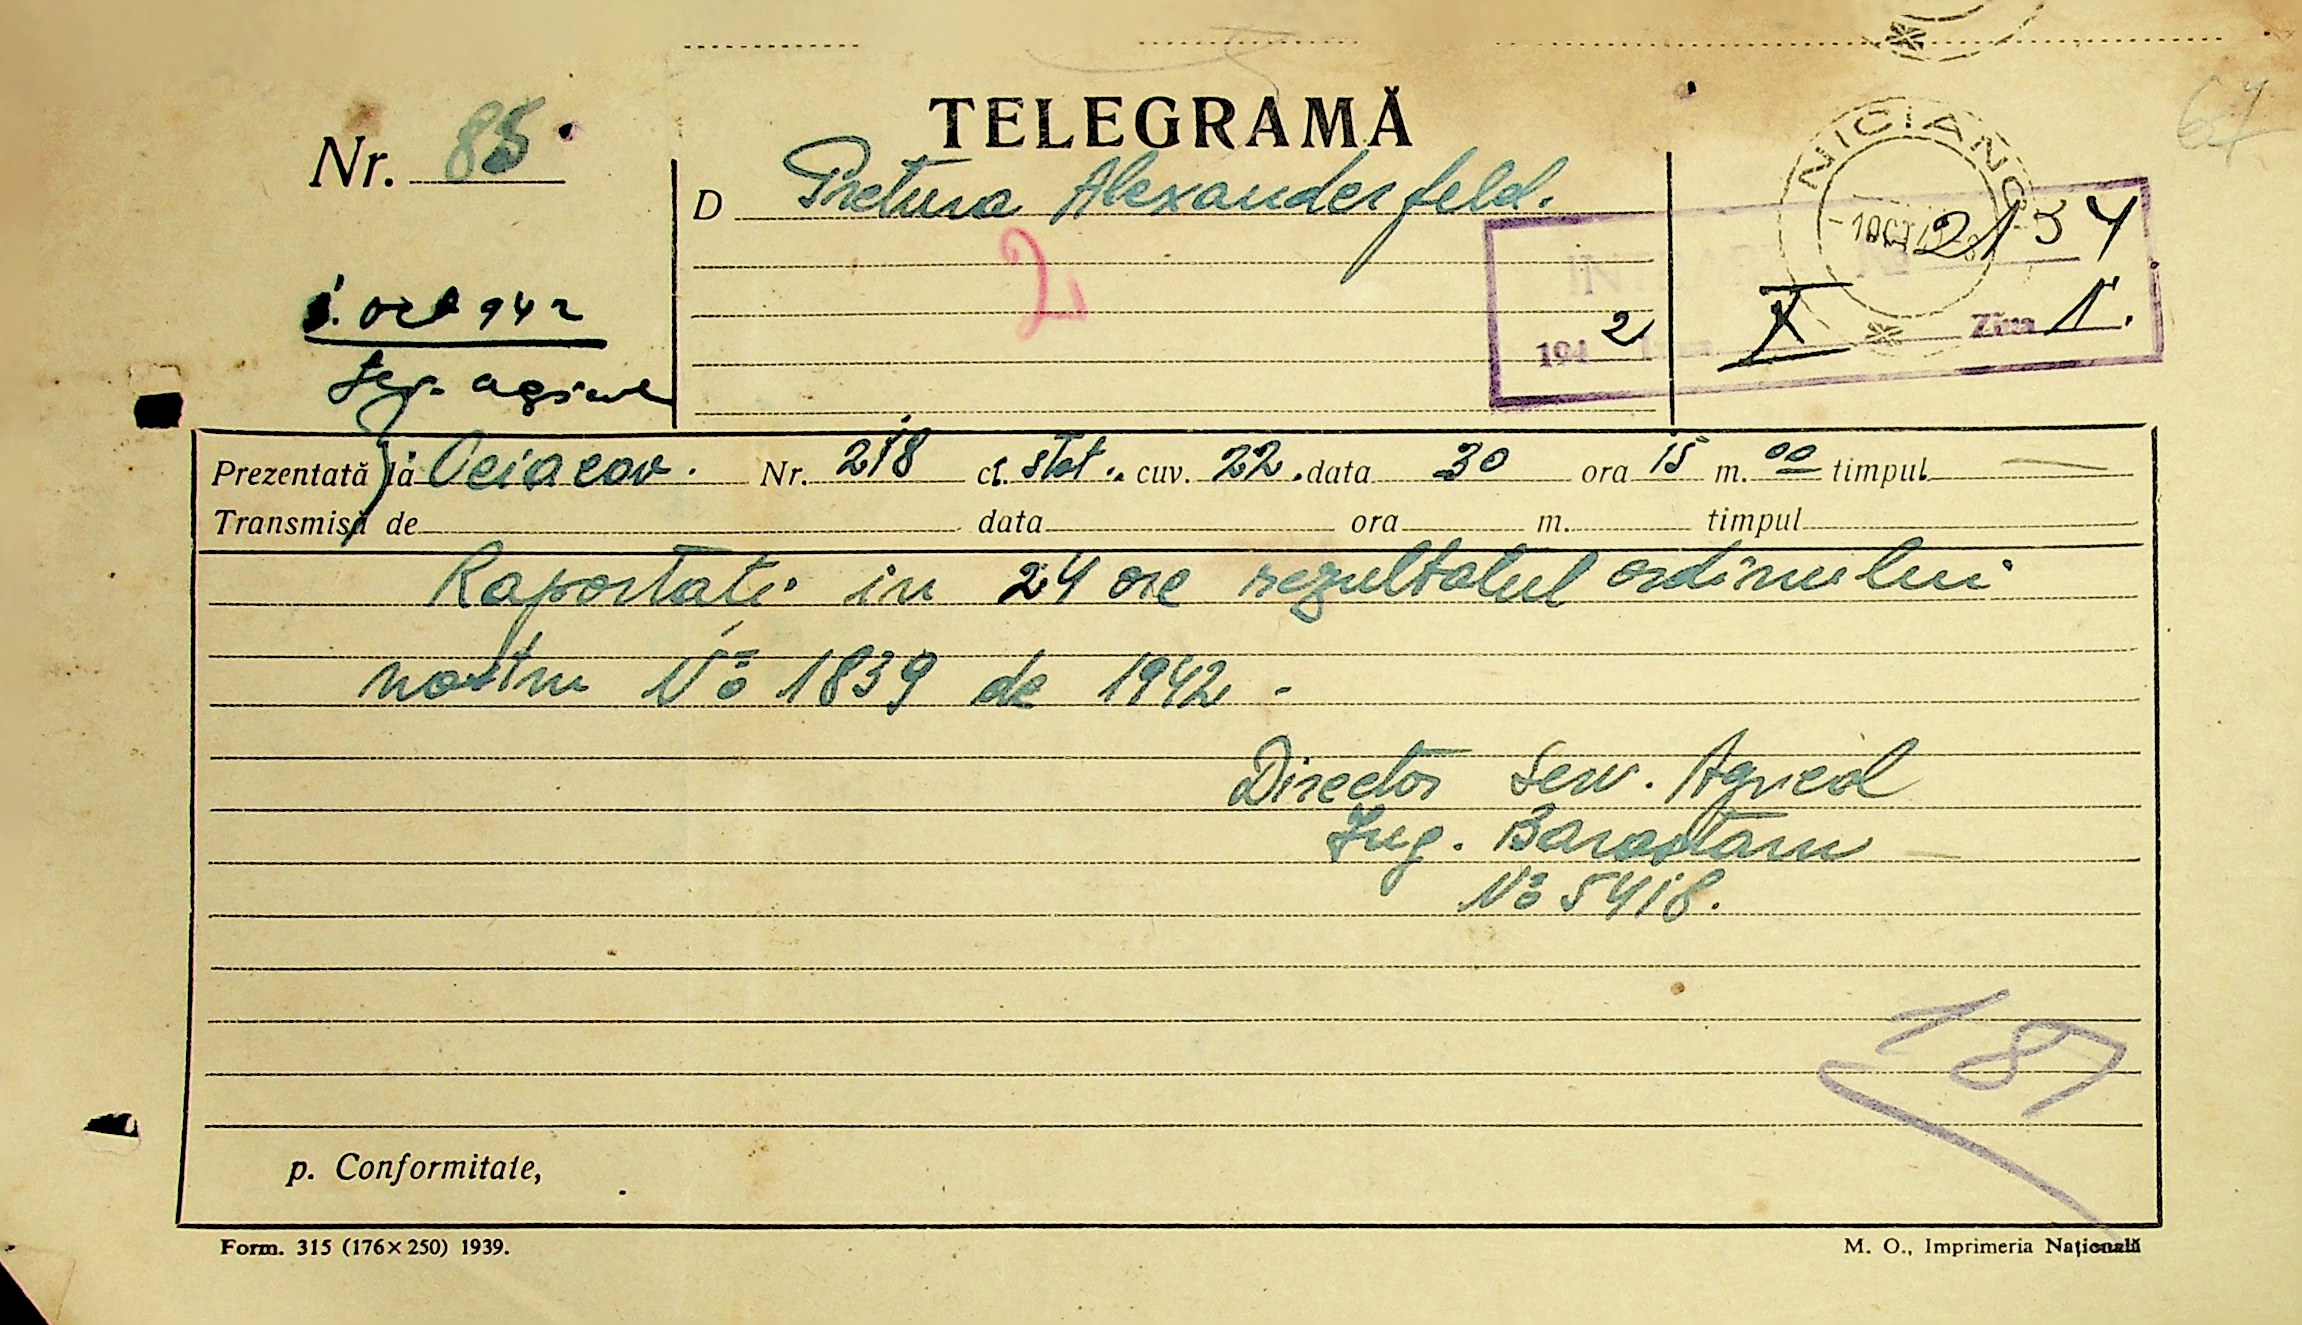 67
TELEGRAMĂ
Nr. 85
D Pretura Alexanderfeld.
2
NICIANO
2134
194 2 X Ziua 1.
1. Oct 942
Prezentată la Oceacov. Nr. 218 cl. stat. cuv. 22. data 30 ora 15 m. 00 timpul
Transmisă de data ora m. timpul
Raportati in 24 ore rezultatul ordinului
nostru No 1839 de 1942 -
Director Serv. Agricol
Ing.
No 5418.
187
p. Conformitate,
Form. 315 (176×250) 1939.
M. O., Imprimeria Naţională